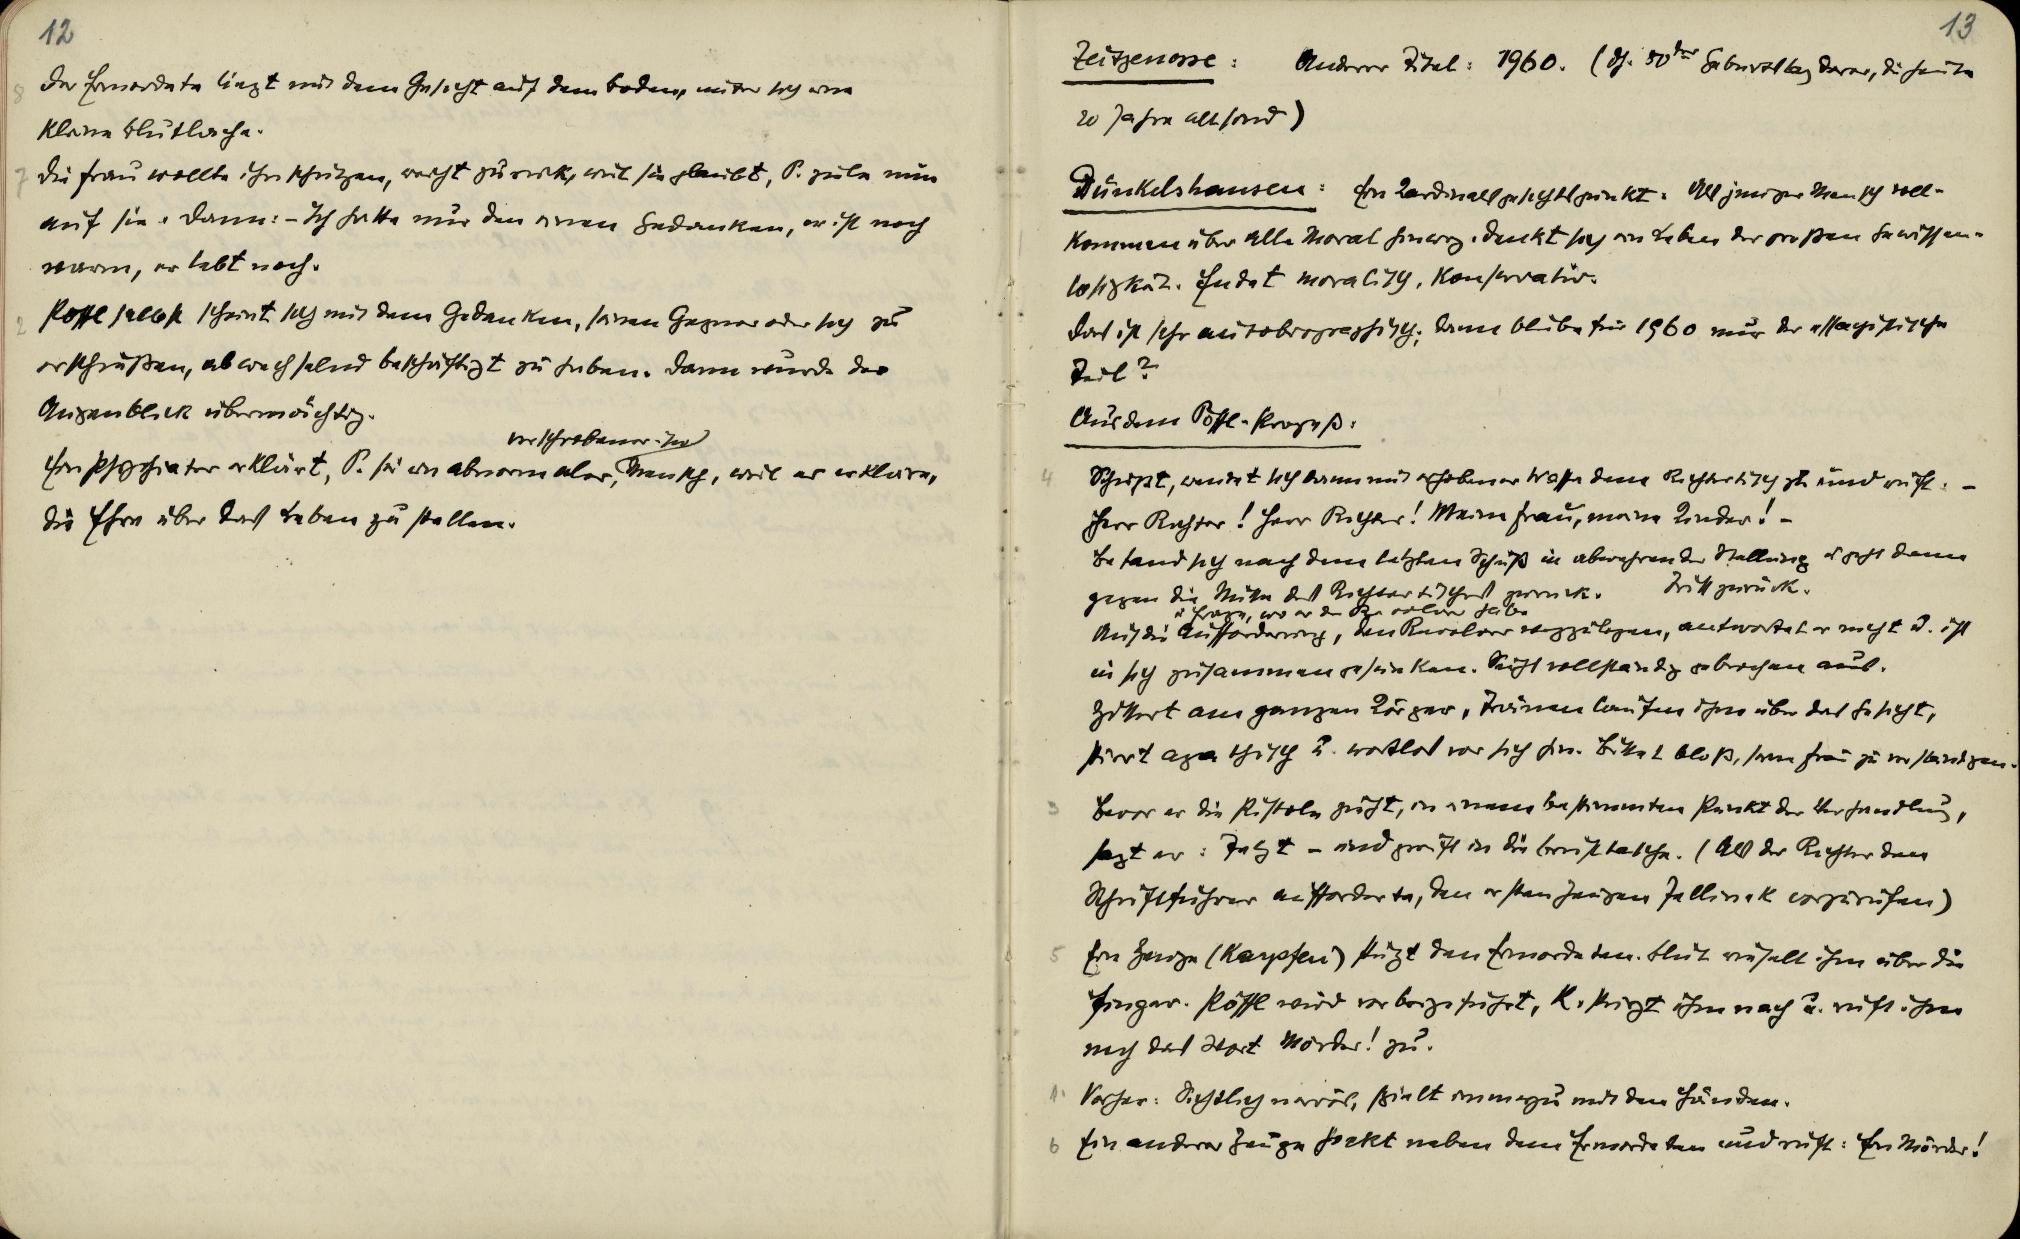 12
8 Der Ermordete liegt mit dem Gesicht auf dem Boden, unter sich eine
kleine Blutlache.
7 Die Frau wollte ihn schützen, weicht zurück, weil sie glaubt, P. ziele nun
auf sie. Dann: – Ich hatte nur den einen Gedanken, er ist noch
warm, er lebt noch.
2 Poffl selbst scheint sich mit dem Gedanken, seinen Gegner oder sich zu
erschießen, abwechselnd beschäftigt zu haben. Dann wurde der
Augenblick übermächtig.
verschrobener
Ein Psychiater erklärt, P. sei ein abnormaler, Mensch, weil er erkläre,
die Ehre über das Leben zu stellen.
13
Zeitgenosse: Anderer Titel: 1960. (Dh. 50ster Geburtstag derer, die heute
20 Jahre alt sind)
Dünkelshausen: Ein Kardinalgesichtspunkt: Als junger Mensch voll-
kommen über alle Moral hinweg. Denkt sich ein Leben der großen Gewissen-
losigkeit. Endet moralisch, konservativ.
Das ist sehr autobiographisch; dann bliebe für 1960 nur der essayistische
Teil?
Aus dem Poffl-Prozeß:
4 Schießt, wendet sich dann mit erhobener Waffe dem Richtertisch zu und ruft: –
Herr Richter! Herr Richter! Meine Frau, meine Kinder! –
Befand sich nach dem letzten Schuß in abwehrender Stellung u geht dann
gegen die Mitte des Richtertisches zurück. Tritt zurück.
u Frage, wo er den Revolver habe
Auf die Aufforderung, den Revolver wegzulegen, antwortet er nicht u. ist
in sich zusammengesunken. Sieht vollständig gebrochen aus.
Zittert am ganzen Körper, Tränen laufen ihm über das Gesicht,
stiert apathisch u. wortlos vor sich hin. Bittet bloß, seine Frau zu verständigen.
3 Bevor er die Pistole zieht, in einem bestimmten Punkt der Verhandlung,
sagt er: Jetzt – und greift in die Brusttasche. (Als der Richter den
Schriftführer aufforderte, den ersten Zeugen Jellinek vorzurufen)
5 Ein Zeuge (Karpfen) stützt den Ermordeten. Blut rieselt ihm über die
Finger. Pöffl wird vorbeigeführt, K. stürzt ihm nach u. ruft ihm
noch das Wort Mörder! zu.
1. Vorher: Sichtlich nervös, spielt immerzu mit den Händen.
6 Ein anderer Zeuge hockt neben dem Ermordeten und ruft: Ein Mörder!